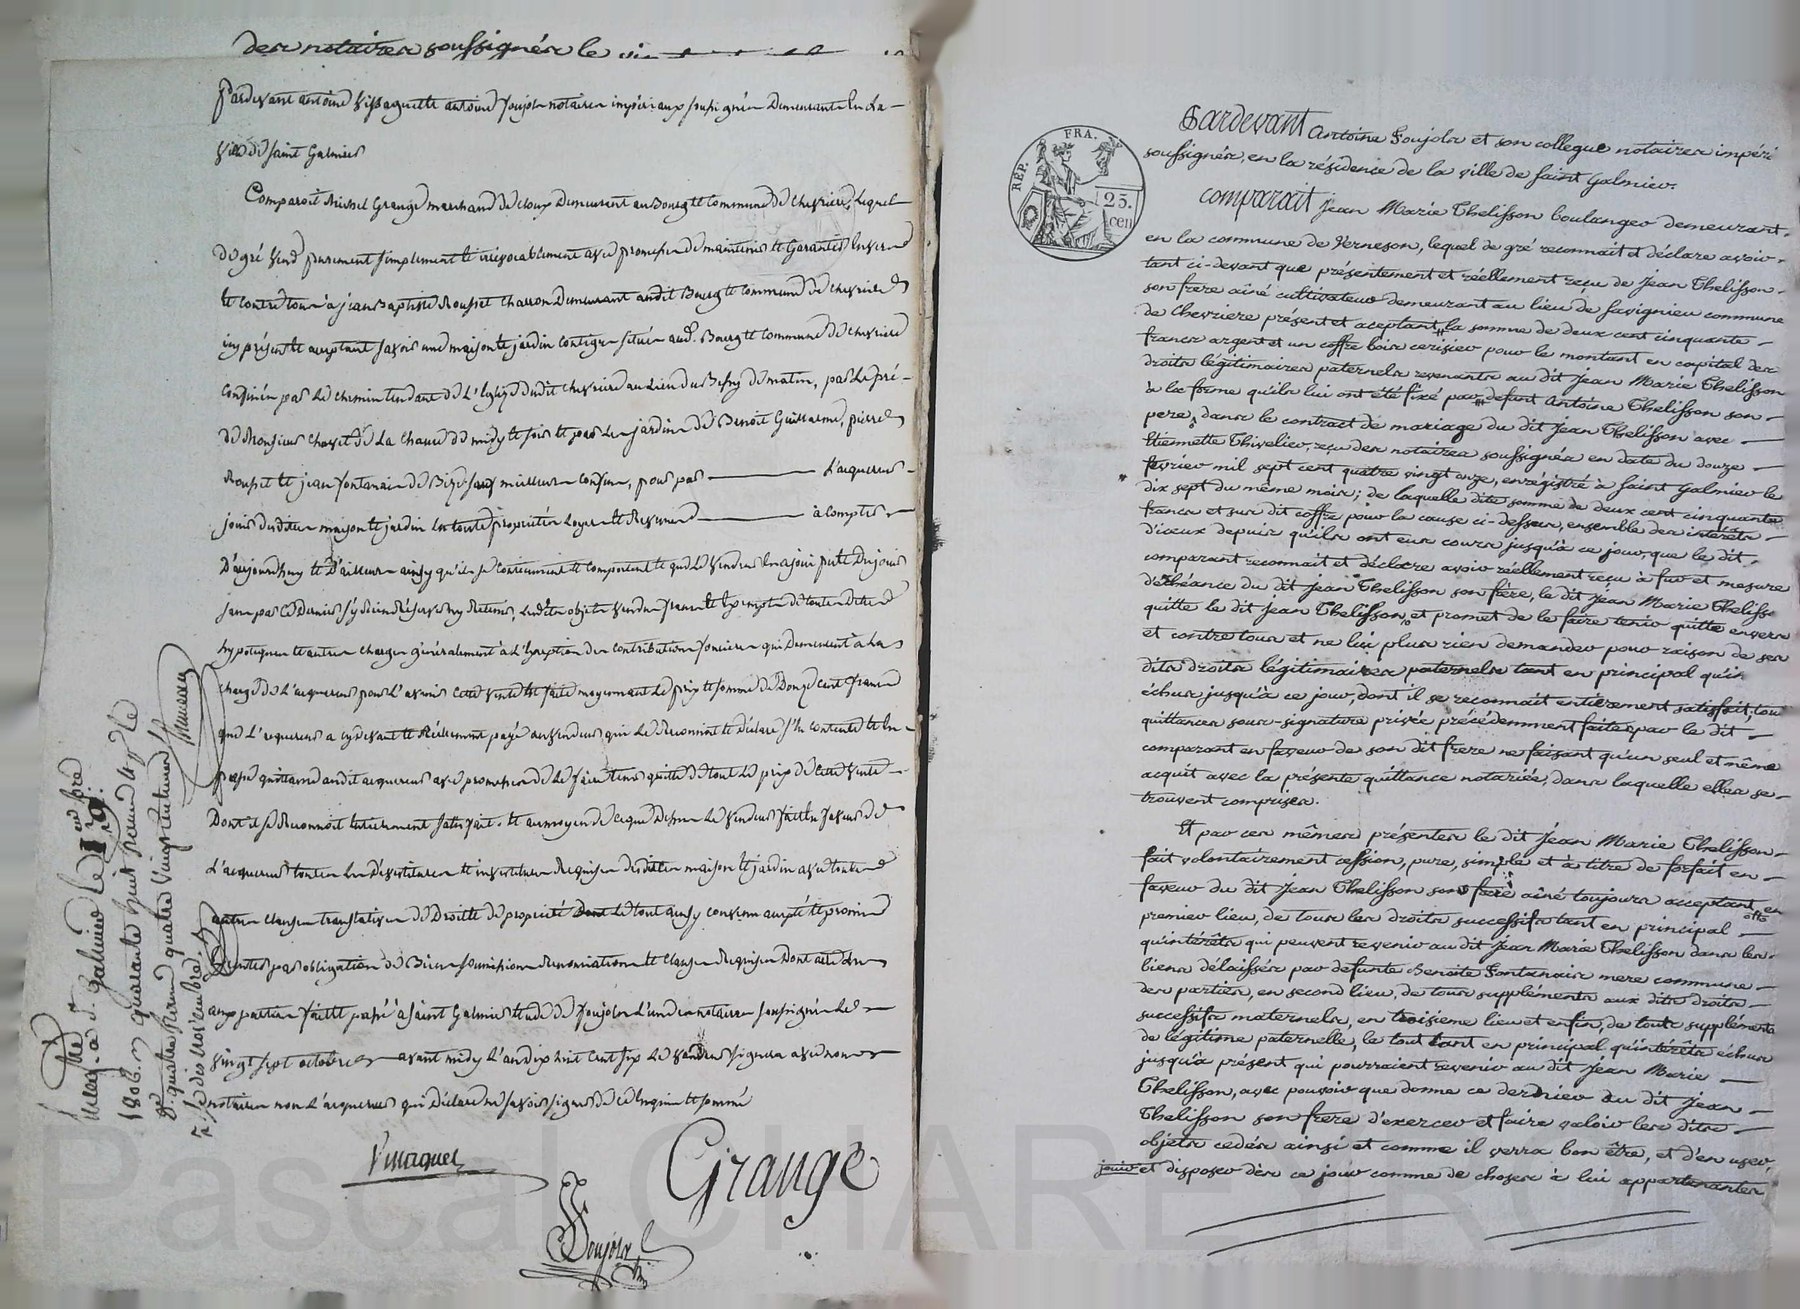 des notaires soussignés le
Pardevant antoine Vissaguet et antoine Foujols notaires impériaux soussignés Demeurants En La
Ville de Saint Galmier
Comparoit Michel Grange marchand de cloux Demeurent au Bourg et Commune de Chevrieres, Lequel
de gré Vend purement simplement et irrévocablement avec promesse de maintenir et Garantir Envers
et contre tous à jean Baptiste Rousset Charron Demeurant audit Bourg et Commune de Chevrieres
icy présent et acceptant savoir une maison et jardin contigus situés aud. Bourg et Commune de Chevrieres
Confinés par le chemin tendant de L'Eglize dudit Chevrieres au Lieu du de matin, par Le pré
de Monsieur de La Chance de midy et soir et par Le jardin de Benoit Guillaume, pierre
Rousset et jean fontanais de Bize sauf meilleurs confins, pour par L'acquereur
jouir desdites maison et jardin En toute propriété Loyer et Revenus à compter
D'aujourdhuy et D'ailleurs ainsy qu'ils se Contiennent et comportent et que le Vendeur En a joui peut Du jouir
sans par ce Dernier s'y Rien Réserver ny Retenir, Lesdits objets vendus francs et Exempts de toutes dettes
hypoteques et autres charges généralement à L'Exeption des contributions foncieres qui Demeurent à La
charge de L'acquereur pour L'avenir Cette vente Est faite moyennant Le prix et somme de Douze Cent francs
que L'acquereur a cydevant et Réellement payé au vendeur qui Le Reconnoit et déclare s'En contente et En
passe quittance audit acquereur avec promesse de Le faire tenir quitte de tout Le prix de Cette vente
Dont il se Reconnoit Entierement satisfait. et au moyen de ce que Dessus Le Vendeur fait En faveur de
L'acquereur toutes Les Dévestitures et investitures Requises desdites maison et jardin avec toutes
autres clauses translatives de Droits de propriété Dont Le tout ainsy convenu accepté et promis
par obligation de Biens soumissions Renonciations et clauses Requises Dont acte Lu
aux parties fait et passé à Saint Galmier Etude de Foujols L'un des notaires soussignés Le
Vingt sept octobre avant midy L'an dix huit cent six Le vendeur signera avec nous
notaires non L'acquereur qui Déclare ne savoir signer de ce Enquis et sommé
Vissaguet
Grange
Foujols
Enreg.tré à S.t Galmier Le 1er 9bre
1806. Rx quarante huit francs et pr Le
d.e quatre francs quatre vingt centimes
Pardevant Antoine Foujols et son collegue notaires impéri
soussignés, en la résidence de la ville de saint Galmier.
REP. FRA.
25.
cen
comparait Jean Marie Thelisson boulanger demeurant
en la commune de Verneson, lequel de gré reconnait et déclare avoir
tant ci-devant que présentement et réellement reçu de Jean Thelisson
son frere aîné cultivateur demeurant au lieu de savignieu commune
de Chevriere présent et aceptant, la somme de deux cent cinquante
francs argent et un coffre bois cerisier pour le montant en capital des
droits légitimaires paternels revenants au dit Jean Marie Thelisson
à la forme qu'ils lui ont été fixé par defunt Antoine Thelisson son
pere, dans le contract de mariage du dit Jean Thelisson avec
Etiennette Thivelier, reçu des notaires soussignés en date du douze
fevrier mil sept cent quatre vingt onze, enrégistré à saint Galmier le
dix sept du même mois; de laquelle dite somme de deux cent cinquante
francs et sur dit coffre pour la cause ci-dessus, ensemble des intérêts
d'iceux depuis qu'ils ont eus cours jusqu'à ce jour, que le dit
comparant reconnait et déclare avoir réellement reçu à fur et mesure
d'échéance du dit Jean Thelisson son frère, le dit Jean Marie Theliss
quitte le dit Jean Thelisson, et promet de le faire tenir quitte envers
et contre tous et ne lui plus rien demander pour raison de ses
dits droits légitimaires paternels tant en principal qu'in
échus jusqu'à ce jour, dont il se reconnait entièrement satisfait, tou
quittances sous-signature privée précédemment faites par le dit
comparant en faveur de son dit frere ne faisant qu'un seul et même
acquit avec la présente quittance notariée, dans laquelle elles se
trouvent comprises.
Et par ces mêmes présentes le dit Jean Marie Thelisson
fait volontairement cession, pure, simple et à titre de forfait en
faveur du dit Jean Thelisson son frere aîné toujours acceptant, en
premier lieu, de tous les droits successifs tant en principal
qu'intérêts qui peuvent revenir au dit Jean Marie Thelisson dans les
biens délaissés par defunte Benoite Fontanais mere commune
des parties, en second lieu, de tous suppléments aux dits droits
successifs maternels, en troisieme lieu et enfin, de touts suppléments
de légitime paternelle, le tout tant en principal qu'intérêts échus
jusqu'à présent qui pourraient revenir au dit Jean Marie
Thelisson, avec pouvoir que donne ce dernier au dit Jean
Thelisson son frere d'exercer et faire valoir les dits
objets cedés ainsi et comme il verra bon être, et d'en user,
jouir et disposer dès ce jour comme de choses à lui appartenantes
Pascal CHAREYRON